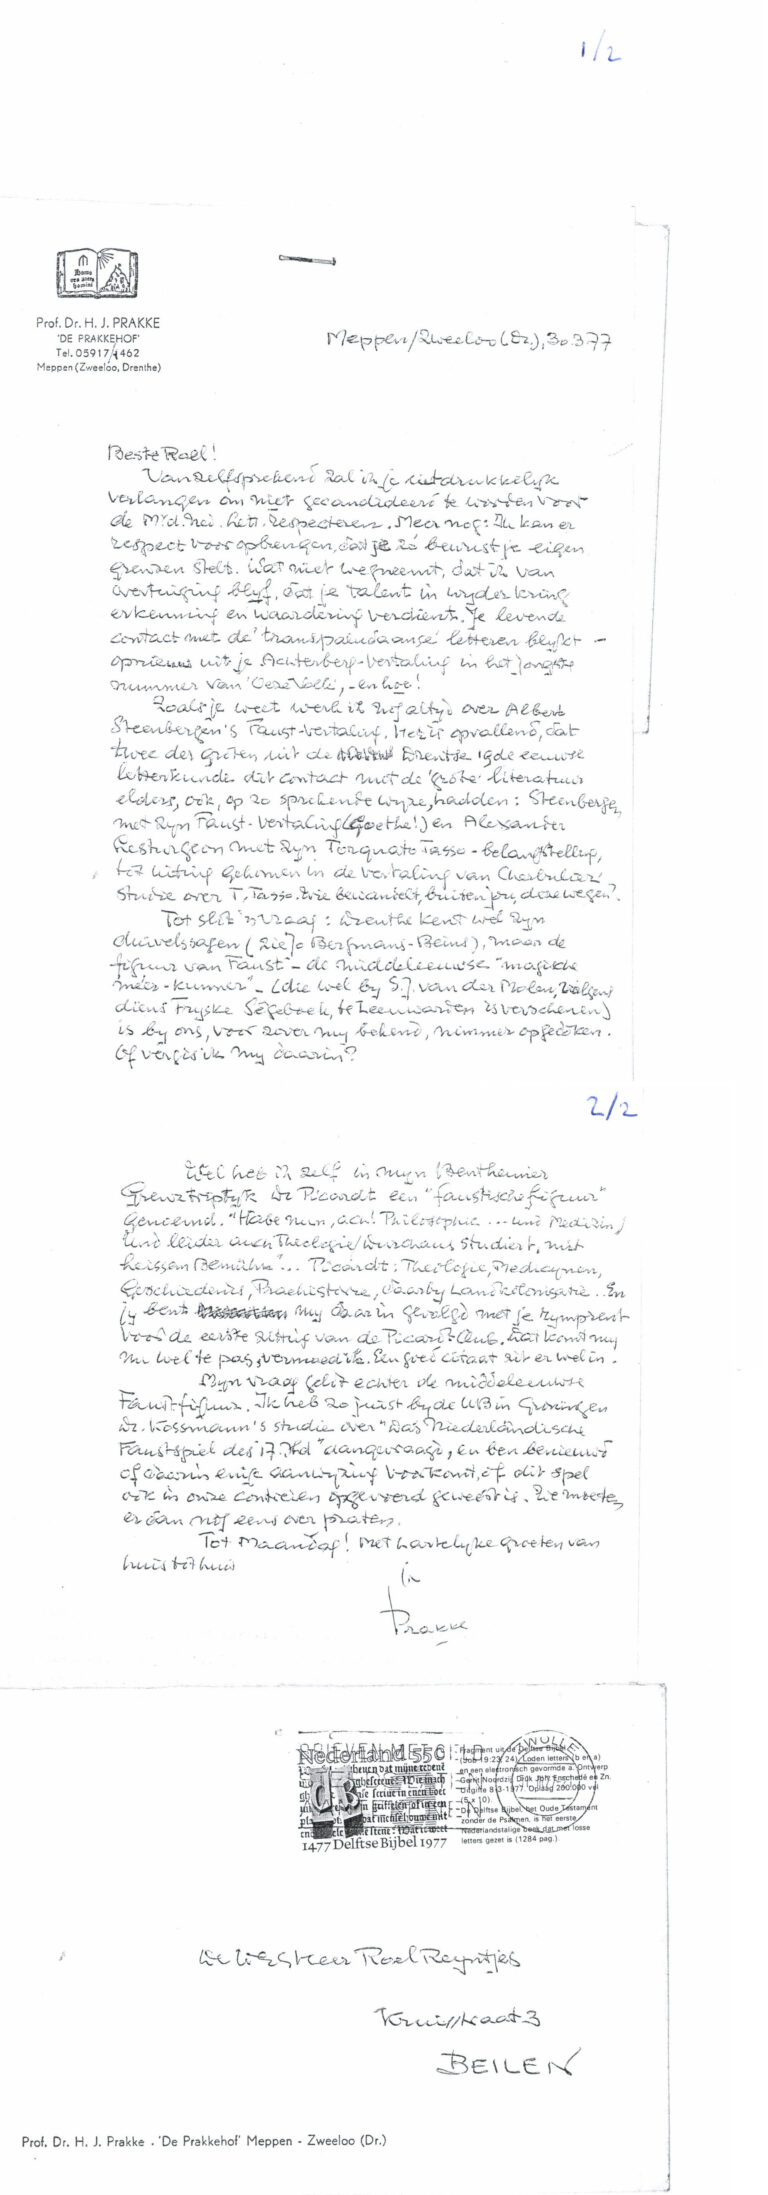 1/2
Homo
homini
Prof. Dr. H. J. PRAKKE
'DE PRAKKEHOF'
Tel. 05917/1462
Meppen (Zweeloo, Drenthe)
Meppen/Zweeloo (Dr.), 30.3.77
Beste Roel!
Vanzelfsprekend zal ik je uitdrukkelijk
verlangen om niet gecandideerd te worden voor
de Mij.d.Ned.Lett. respecteren. Meer nog: Ik kan er
respect voor opbrengen, dat je zó bewust je eigen
grenzen stelt. Wat niet wegneemt, dat ik van
overtuiging blijf, dat je talent in wijder kring
erkenning en waardering verdient. Je levende
contact met de 'transpaludaanse' letteren blijkt -
opnieuw uit je Achterberg-vertaling in het jongste
nummer van 'Oeze Volk', - en hoe!
Zoals je weet werk ik nog altijd over Albert
Steenbergen's Faust-vertaling. Het is opvallend, dat
twee der groten uit de Drentse 19de eeuwse
letterkunde dit contact met de 'grote' literatuur
elders, ook, op zo sprekende wijze, hadden: Steenbergen
met zijn Faust-vertaling (Goethe!) en Alexander
Lesturgeon met zijn Torquato Tasso-belangstelling,
tot uiting gekomen in de vertaling van Cherbuliez'
studie over T. Tasso. Wie bewandelt, buiten jou, deze wegen?
Tot slot 'n vraag: Drenthe kent wel zijn
duivelssagen (zie Jo Bergmans-Beins), maar de
figuur van Faust - de middeleeuwse "magische
méér-kunner" - (die wel bij S.J. van der Molen, volgens
diens Fryske Sêgeboek, te Leeuwarden is verschenen)
is bij ons, voor zover mij bekend, nimmer opgedoken.
Of vergis ik mij daarin?
2/2
Wel heb ik zelf in mijn Bentheimer
Grenztriptyk Dr Picardt een "faustische figuur"
genoemd. "Habe nun, ach! Philosophie ... und Medizin/
Und leider auch Theologie/Durchaus studiert, mit
heissem Bemühn"... Picardt: Theologie, Medicynen,
Geschiedenis, Praehistorie, daarbij Landkolonisatie.. En
jij bent mij daarin gevolgd met je rijmprent
voor de eerste zitting van de Picardt-Club. Dat komt mij
nu wel te pas, vermoed ik. Een goed citaat zit er wel in.
Mijn vraag geldt echter de middeleeuwse
Faust-figuur. Ik heb zo juist bij de UB in Groningen
Dr. Kossmann's studie over "Das Niederländische
Faustspiel des 17. Jhd" aangevraagd, en ben benieuwd
of daarin enige aanwijzing voorkomt, of dit spel
ook in onze contreien opgevoerd geweest is. We moeten
er dan nog eens over praten.
Tot Maandag! Met hartelijke groeten van
huis tot huis
Prakke
Nederland 55c
1477 Delftse Bijbel 1977
ZWOLLE
Fragment uit de Delftse Bijbel
(Job 19:23, 24). Loden letters (b en a)
en een elektronisch gevormde a. Ontwerp
Gerrit Noordzij. Druk Joh. Enschedé en Zn.
Uitgifte 8-3-1977. Oplaag 200.000 vel
(5 x 10).
De Delftse Bijbel, het Oude Testament
zonder de Psalmen, is het eerste
Nederlandstalige boek dat met losse
letters gezet is (1284 pag.)
De WelEdHeer Roel Reyntjes
Kruisstraat 3
BEILEN
Prof. Dr. H. J. Prakke . 'De Prakkehof' Meppen - Zweeloo (Dr.)